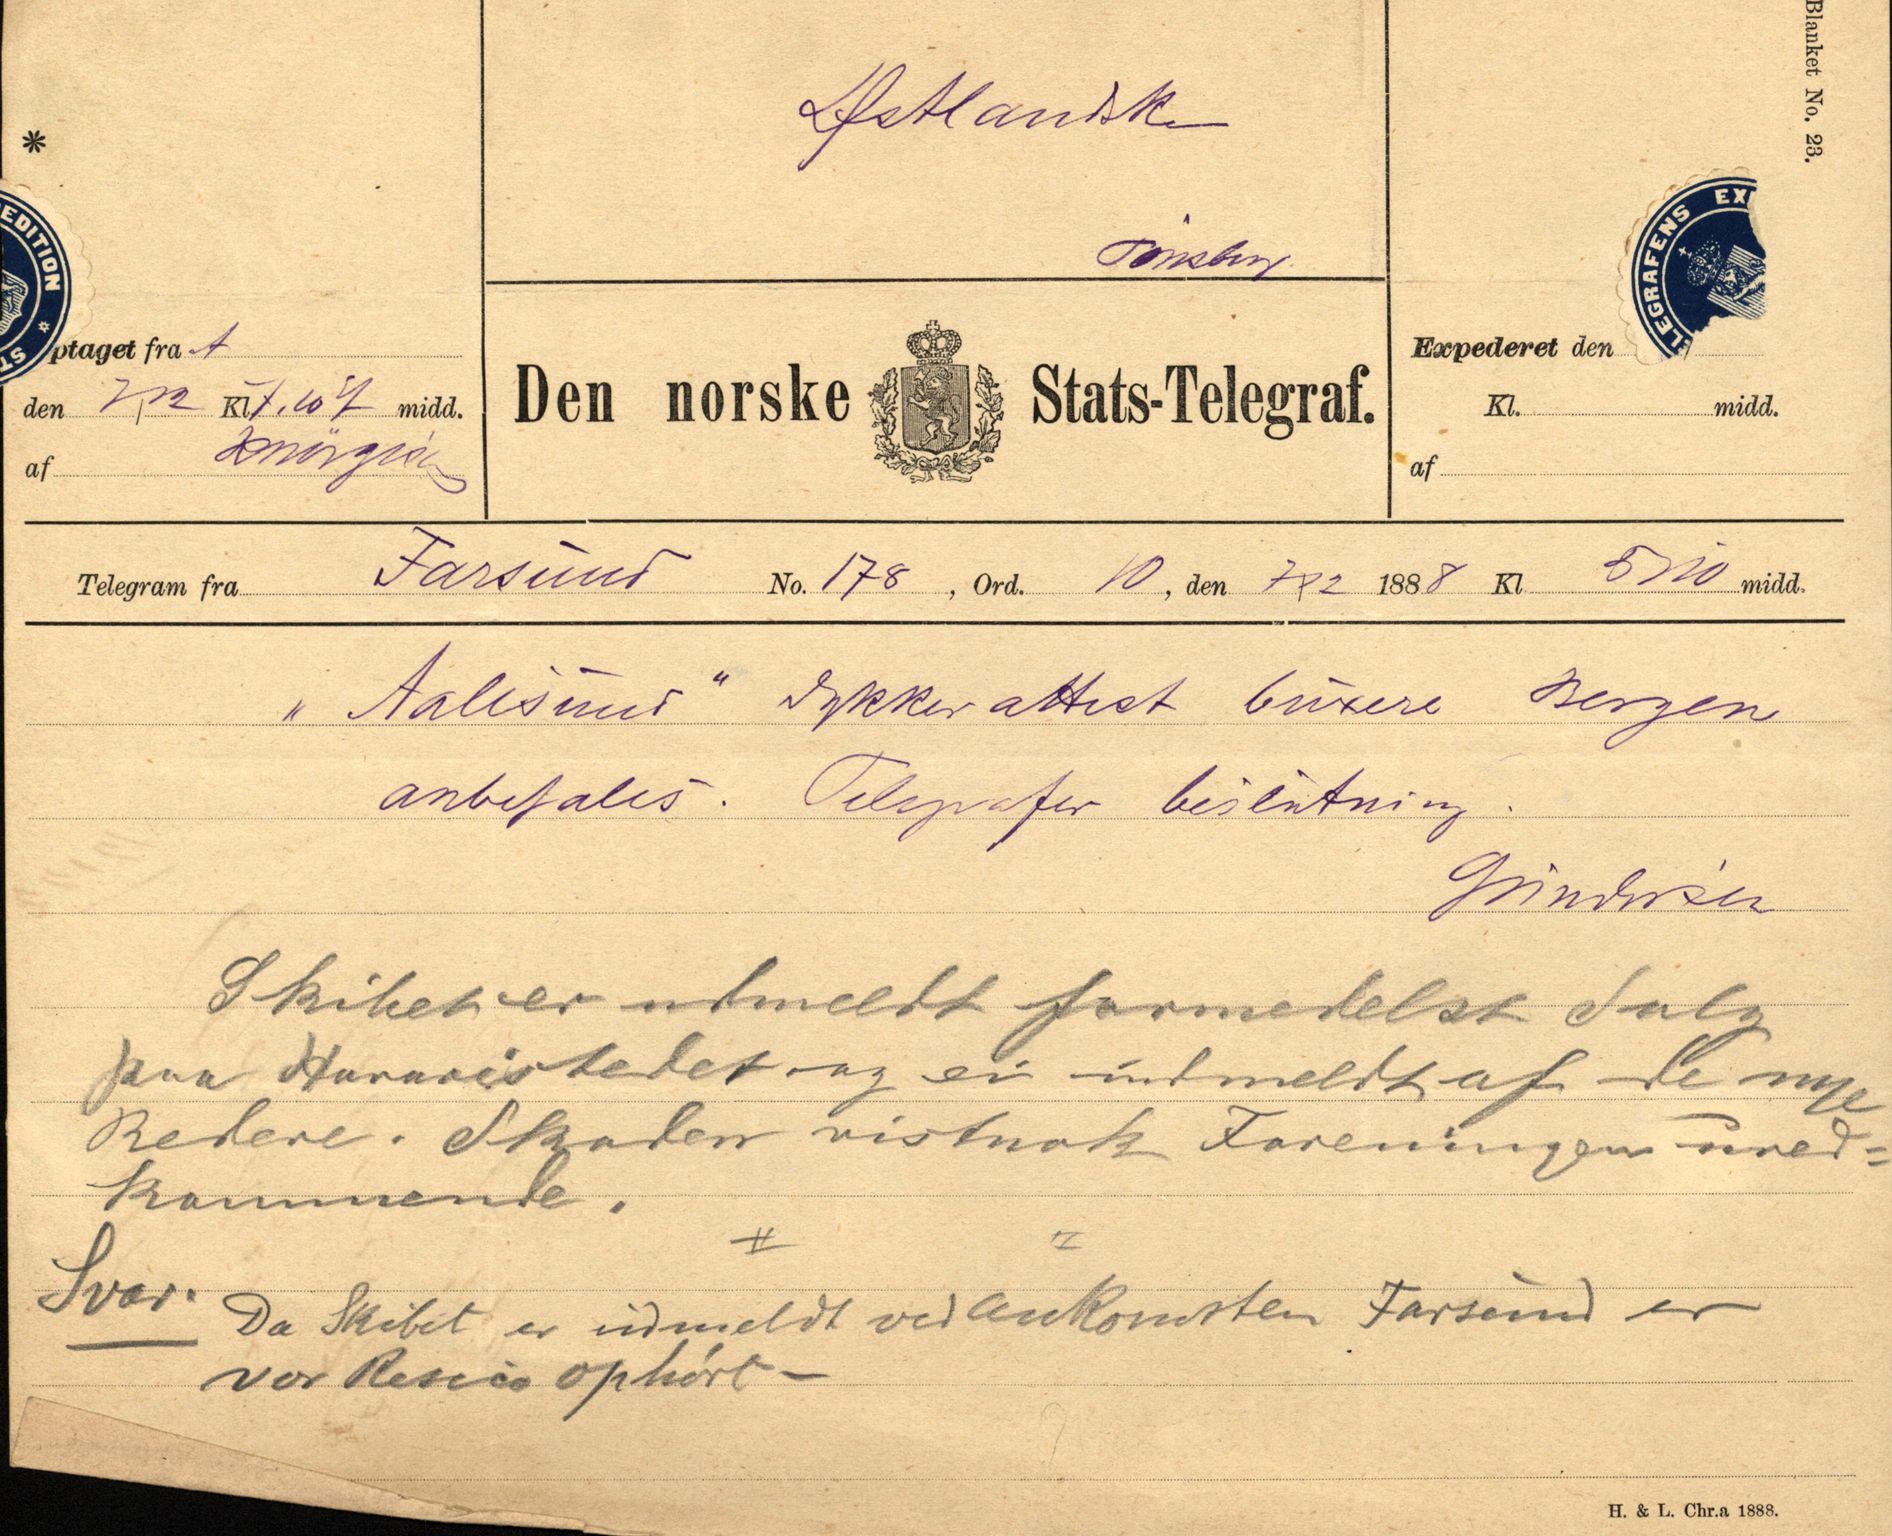 Blanket No. 23.
*
Østlandske
Tönsberg
EDITION * ST
LEGRAFENS EX
ptaget fra A
den 7/12 Kl 7, 10 midd.
af
Den norske Stats-Telegraf.
Expederet den
Kl. midd.
af
Telegram fra Farsund No. 178, Ord. 10, den 7/12 1888 Kl 5/10 midd.
"Aalesund" dykkerattest buxere Bergen
anbefales. Telegrafer beslutning.
Gundersen
Skibet er udmeldt formedelst Salg
paa Havaristedet og ei indmeldt af de nye
Redere. Skaden vistnok Foreningen uved=
kommende.
Svar. Da Skibet er udmeldt ved Ankomsten Farsund er
vor Resico ophört –
H. & L. Chr.a 1888.